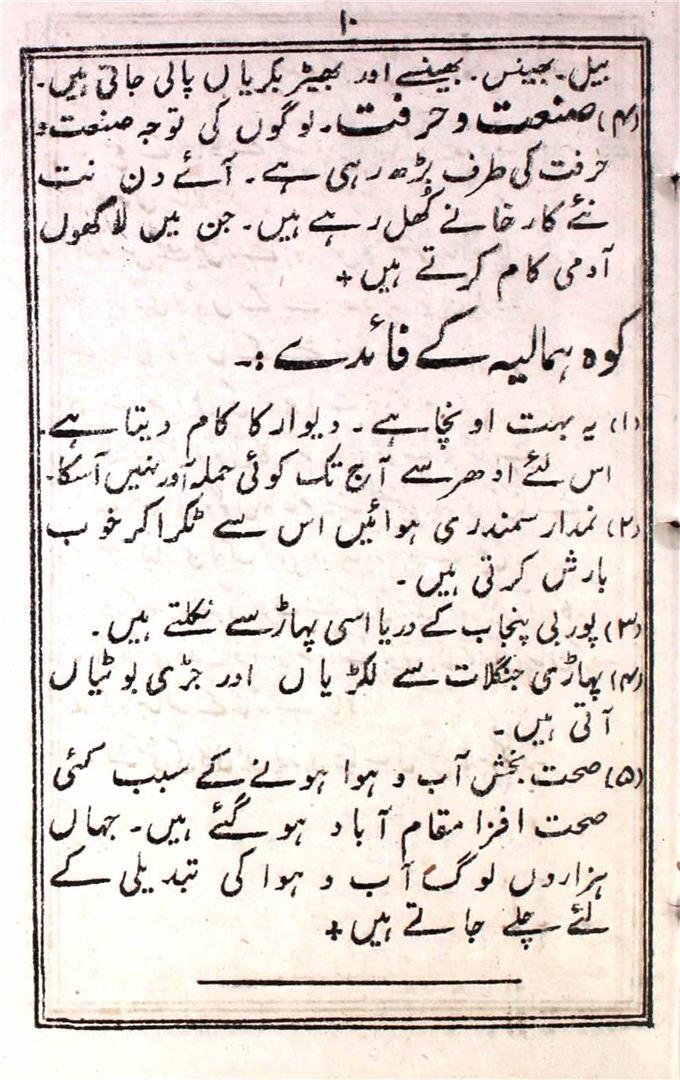 ۱۰
بیل۔ بھینس۔ بھینسے اور بھیڑ بکریاں پالی جاتی ہیں۔
(۴) صنعت و حرفت۔ لوگوں کی توجہ صنعت و
حرفت کی طرف بڑھ رہی ہے۔ آئے دن نت
نئے کارخانے کُھل رہے ہیں۔ جن میں لاکھوں
آدمی کام کرتے ہیں +
کوہ ہمالیہ کے فائدے :۔
(۱) یہ بہت اونچا ہے۔ دیوار کا کام دیتا ہے۔
اس لئے ادھر سے آج تک کوئی حملہ آور نہیں آسکا۔
(۲) نمدار سمندری ہوائیں اس سے ٹکرا کر خوب
بارش کرتی ہیں۔
(۳) پوربی پنجاب کے دریا اسی پہاڑ سے نکلتے ہیں۔
(۴) پہاڑی جنگلات سے لکڑیاں اور جڑی بوٹیاں
آتی ہیں۔
(۵) صحت بخش آب و ہوا ہونے کے سبب کئی
صحت افزا مقام آباد ہو گئے ہیں۔ جہاں
ہزاروں لوگ آب و ہوا کی تبدیلی کے
لئے چلے جاتے ہیں +